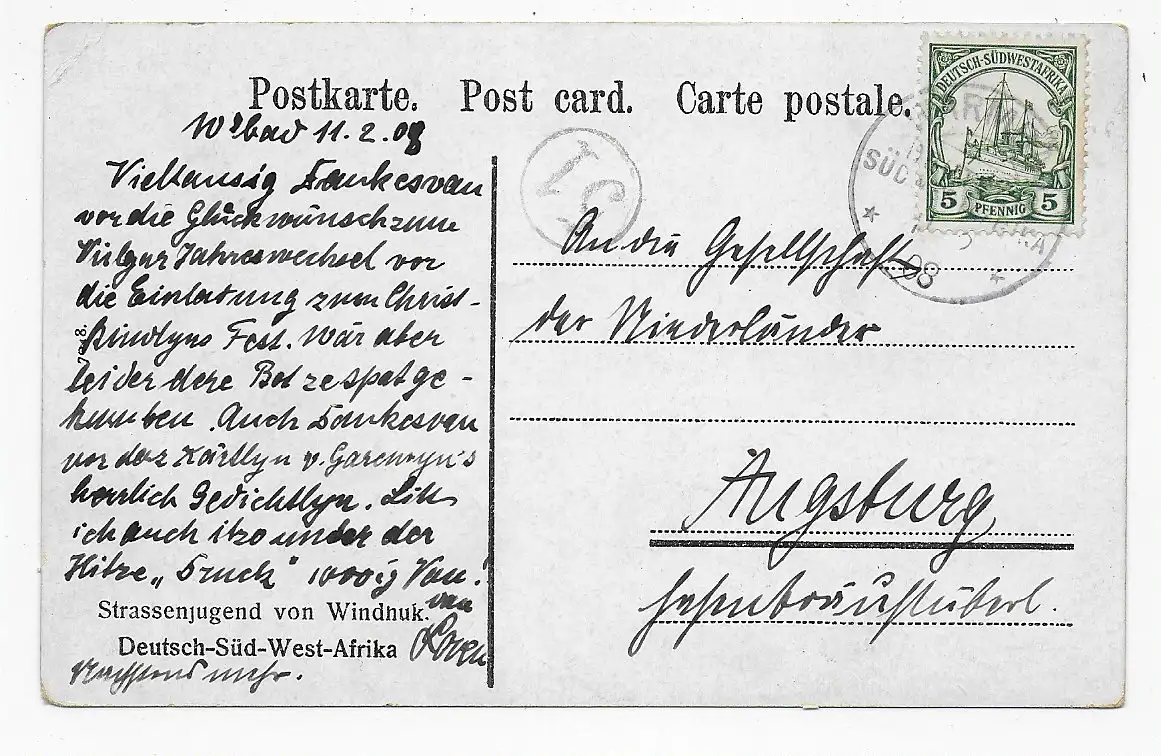 Postkarte. Post card. Carte postale.
DEUTSCH-SÜDWESTAFRIKA
5 PFENNIG 5
SÜD
08
W'bad 11.2.08
Vieltausig Dankesvan
vor die Glückwünsch zum
Jahreswechsel vor
die Einladung zum Christ-
kindlyns Fest. Wär aber
leider dere Bot ze spat ge-
kumben. Auch Dankesvan
vor daz Kärtlyn v.
herrlich Gedichtlyn.
ich auch itzo under der
Hitze „Druck"
van
Strassenjugend von Windhuk.
Deutsch-Süd-West-Afrika
mehr.
An die Gesellschaft
der Niederländer
Augsburg